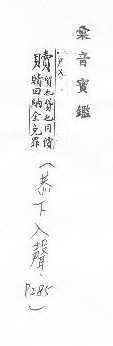 彙音寶鑑
贖 質也貿也同償
贖田納金免罪
（恭下入聲，
P285）